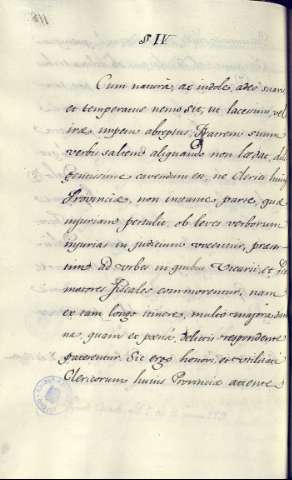 § IV
Cum naturâ, ac indole, adeo suavi
et temperatus nemo sit, ut lacessitus, vel
iræ impetu abreptus, fratrem suum
verbis saltem aliquando non lædat, dili
gentissime cavendum est, ne Clerici hujus
Provinciæ, non instante parte, quæ
injuriam pertulit, ob leves verborum
injurias in judicium vocentur, præser
tim ad urbes in quibus Vicarii, et Pro
motores fiscales commorentur, nam
ex tam longo itinere, multo majora dam
na, quam ex pœnâ, delictis respondente
paterentur. Sic ergo honori, et utilitati
Clericorum hujus Provinciæ attente